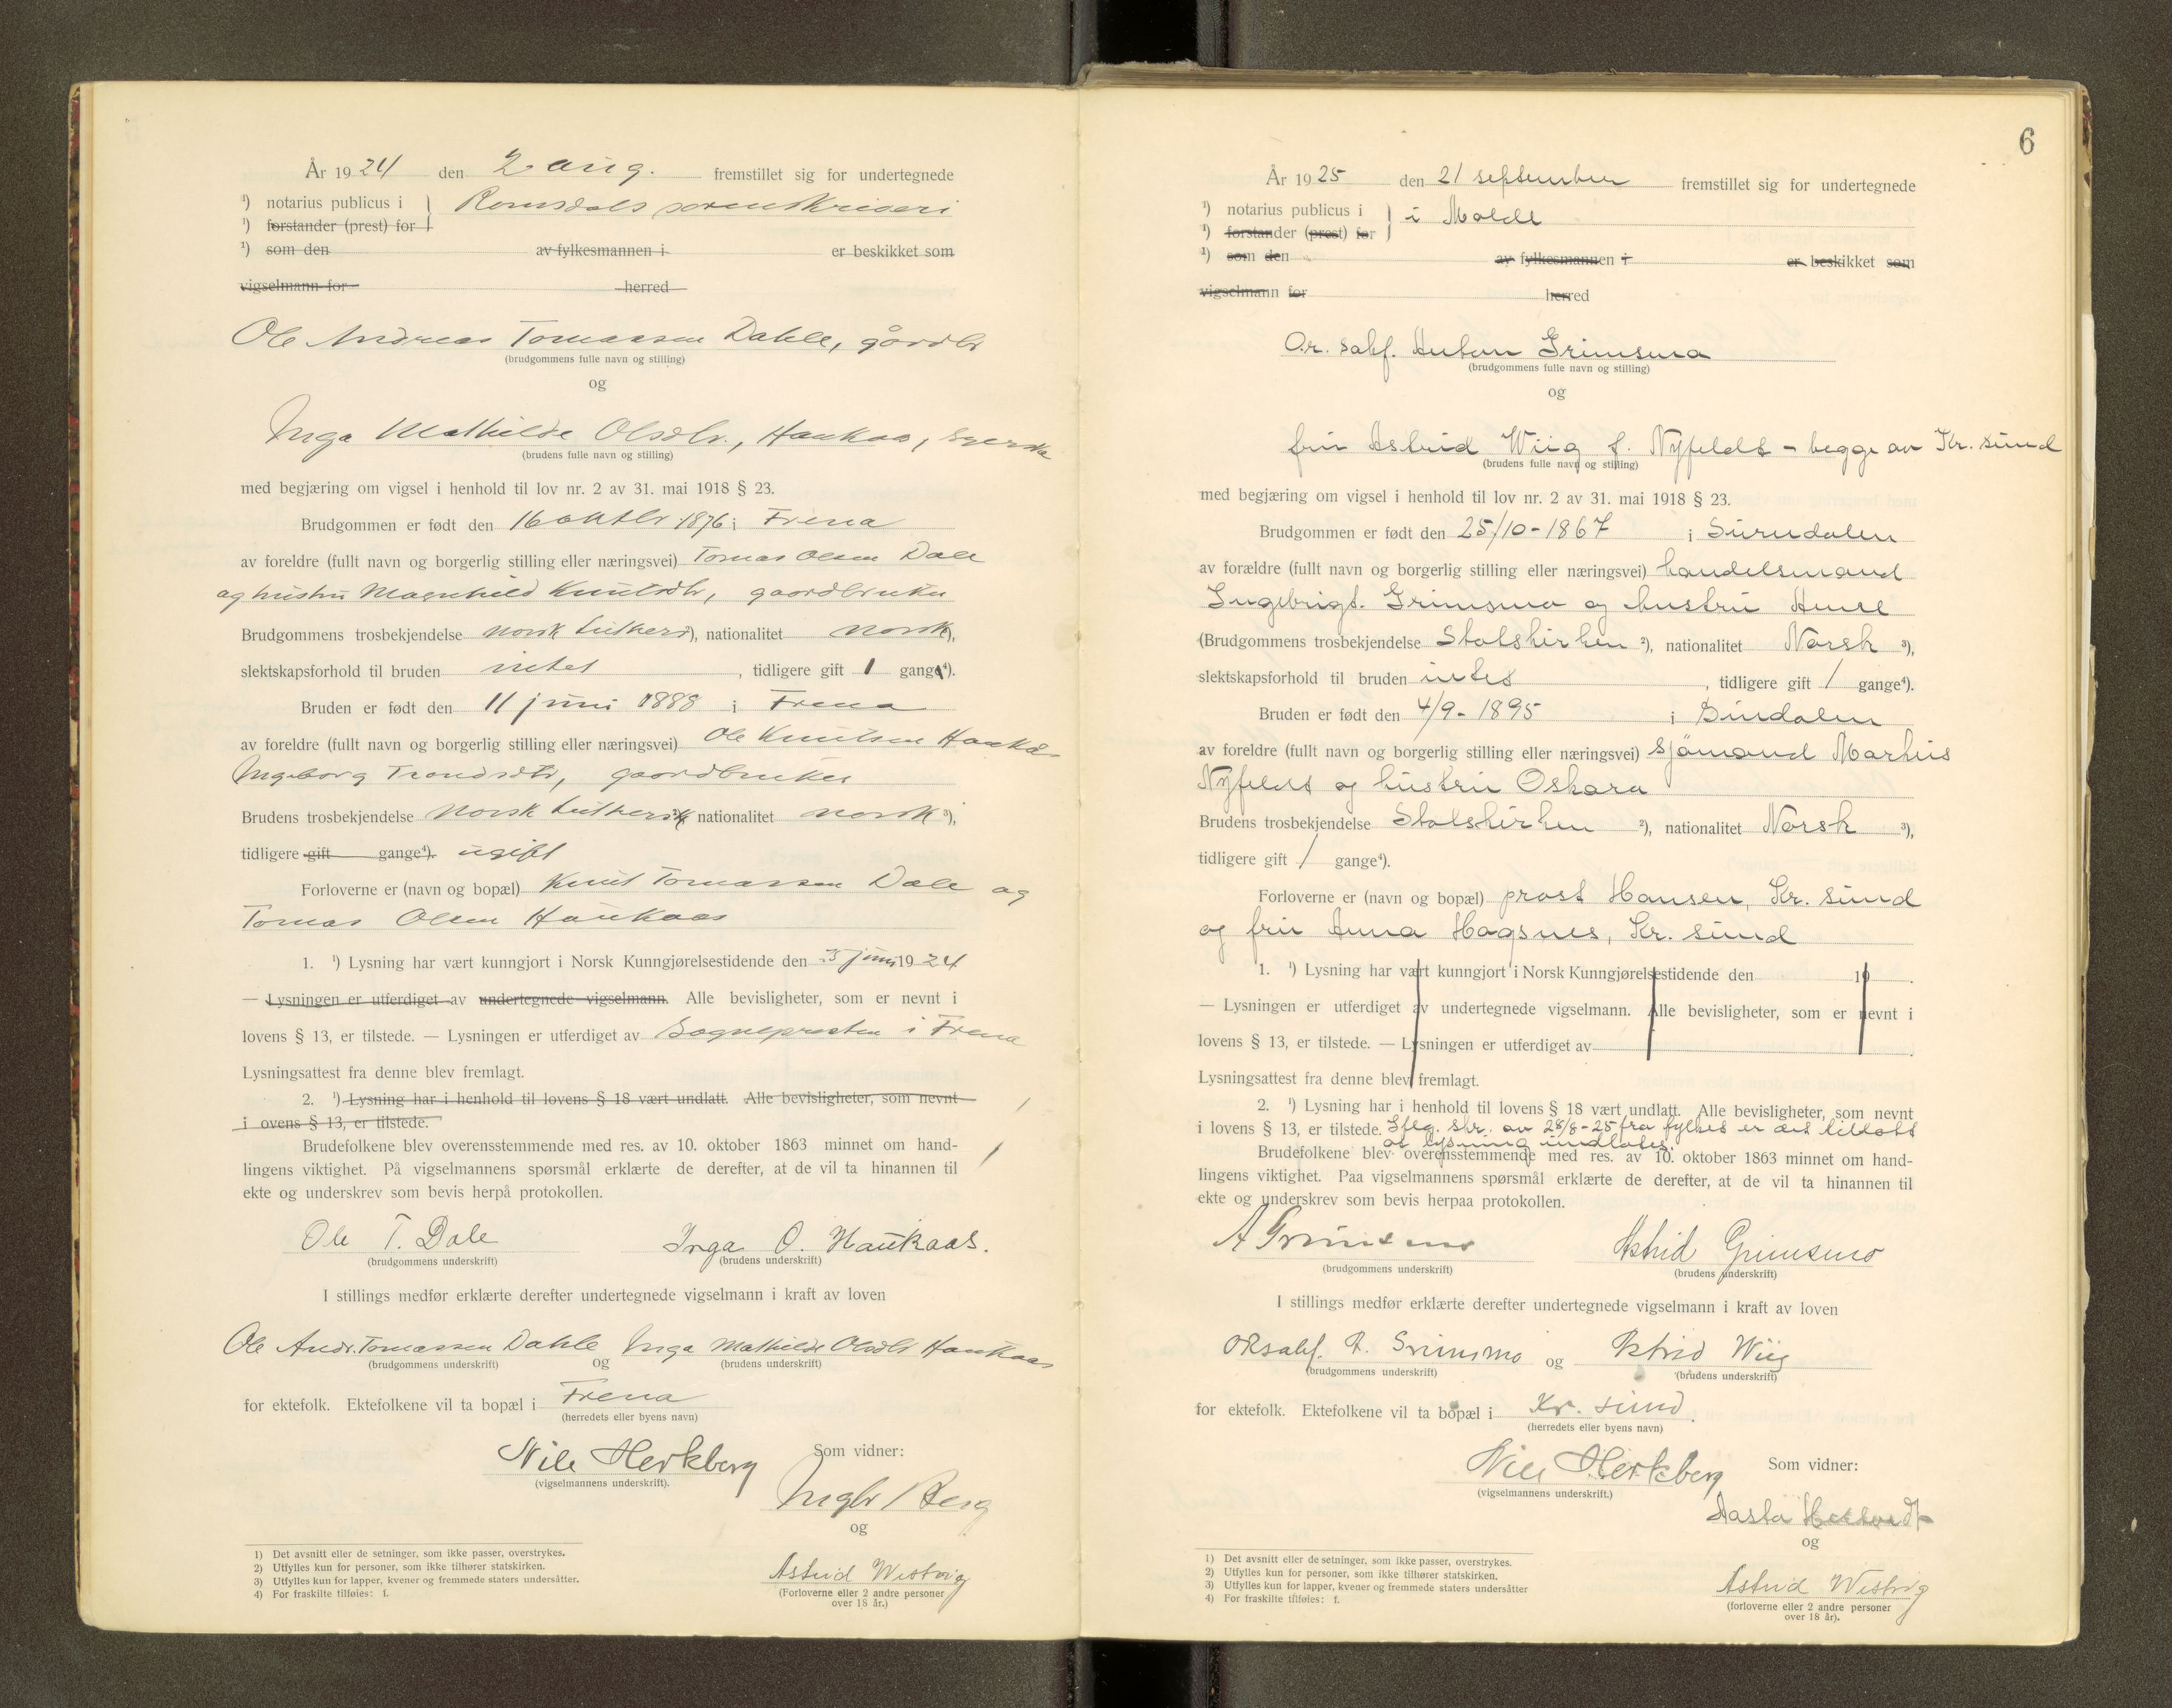 År 1924 den 2 aug. fremstillet sig for undertegnede
¹) notarius publicus i } Romsdals sorenskriveri
¹) forstander (prest) for
¹) som den av fylkesmannen i er beskikket som
vigselmann for herred
Ole Andreas Tomassen Dahle, gårdbr
(brudgommens fulle navn og stilling)
og
Inga Mathilde Olsdtr., Haukaas,
(brudens fulle navn og stilling)
med begjæring om vigsel i henhold til lov nr. 2 av 31. mai 1918 § 23.
Brudgommen er født den 16 oktbr 1876 i Frena
av foreldre (fullt navn og borgerlig stilling eller næringsvei) Tomas Olsen Dale
og hustru Magnhild Knutsdtr, gaardbruker
Brudgommens trosbekjendelse norsk luthersk ), nationalitet norsk ),
slektskapsforhold til bruden intet , tidligere gift 1 gang ⁴).
Bruden er født den 11 juni 1888 i Frena
av foreldre (fullt navn og borgerlig stilling eller næringsvei) Ole Knutsen Haukås
Ingeborg Trondsdtr, gaardbruker
Brudens trosbekjendelse norsk luthersk nationalitet norsk ³),
tidligere gift gange⁴). ugift
Forloverne er (navn og bopæl) Knut Tomassen Dale og
Tomas Olsen Haukaas
1. ¹) Lysning har vært kunngjort i Norsk Kunngjørelsestidende den 3 juni 1924
— Lysningen er utferdiget av undertegnede vigselmann. Alle bevisligheter, som er nevnt i
lovens § 13, er tilstede. — Lysningen er utferdiget av Sognepresten i Frena
Lysningsattest fra denne blev fremlagt.
2. ¹) Lysning har i henhold til lovens § 18 vært undlatt. Alle bevisligheter, som nevnt
i ovens § 13, er tilstede.
Brudefolkene blev overensstemmende med res. av 10. oktober 1863 minnet om hand-
lingens viktighet. På vigselmannens spørsmål erklærte de derefter, at de vil ta hinannen til
ekte og underskrev som bevis herpå protokollen.
Ole T. Dale Inga O. Haukaas.
(brudgommens underskrift) (brudens underskrift)
I stillings medfør erklærte derefter undertegnede vigselmann i kraft av loven
Ole Andr. Tomassen Dahle og Inga Mathilde Olsdtr Haukaas
(brudgommens underskrift) (brudens underskrift)
for ektefolk. Ektefolkene vil ta bopæl i Frena
(herredets eller byens navn)
Nils Herkberg Som vidner:
(vigselmannens underskrift).
Ingbr Berg
og
Astrid Westvig
(Forloverne eller 2 andre personer
over 18 år.)
1) Det avsnitt eller de setninger, som ikke passer, overstrykes.
2) Utfylles kun for personer, som ikke tilhører statskirken.
3) Utfylles kun for lapper, kvener og fremmede staters undersåtter.
4) For fraskilte tilføies: f.
6
År 1925 den 21 september fremstillet sig for undertegnede
¹) notarius publicus i } i Molde
¹) forstander (prest) for
¹) som den av fylkesmannen i er beskikket som
vigselmann for herred
O.r. sakf. Anton Grimsmo
(brudgommens fulle navn og stilling)
og
fru Astrid Wiig f. Nyfeldt - begge av Kr. sund
(brudens fulle navn og stilling)
med begjæring om vigsel i henhold til lov nr. 2 av 31. mai 1918 § 23.
Brudgommen er født den 25/10-1867 i Surndalen
av forældre (fullt navn og borgerlig stilling eller næringsvei) handelsmand
Ingebrigt. Grimsmo og hustru Anne
(Brudgommens trosbekjendelse Statskirken ²), nationalitet Norsk ³),
slektskapsforhold til bruden intet , tidligere gift 1 gange⁴).
Bruden er født den 4/9-1895 i Bindalen
av foreldre (fullt navn og borgerlig stilling eller næringsvei) sjømand Markus
Nyfeldt og hustru Oskara
Brudens trosbekjendelse Statskirken ²), nationalitet Norsk ³),
tidligere gift 1 gange⁴).
Forloverne er (navn og bopæl) prost Hansen, Kr. sund
og fru Anna Hagsnes, Kr. sund
1. ¹) Lysning har vært kunngjort i Norsk Kunngjørelsestidende den 19 .
— Lysningen er utferdiget av undertegnede vigselmann. Alle bevisligheter, som er nevnt i
lovens § 13, er tilstede. — Lysningen er utferdiget av
Lysningsattest fra denne blev fremlagt.
2. ¹) Lysning har i henhold til lovens § 18 vært undlatt. Alle bevisligheter, som nevnt
i lovens § 13, er tilstede. Iflg. skr. av 28/8-25 fra fylket er det tillatt
at lysning undlates.
Brudefolkene blev overensstemmende med res. av 10. oktober 1863 minnet om hand-
lingens viktighet. Paa vigselmannens spørsmål erklærte de derefter, at de vil ta hinannen til
ekte og underskrev som bevis herpaa protokollen.
A Grimsmo Astrid Grimsmo
(brudgommens underskrift) (brudens underskrift)
I stillings medfør erklærte derefter undertegnede vigselmann i kraft av loven
ORsakf. A. Grimsmo og Astrid Wiig
(brudgommens underskrift) (brudens underskrift)
for ektefolk. Ektefolkene vil ta bopæl i Kr. sund.
(herredets eller byens navn)
Nils Herkberg Som vidner:
(vigselmannens underskrift.)
Aasta
og
Astrid Westvig
(forloverne eller 2 andre personer
over 18 år).
1) Det avsnitt eller de setninger, som ikke passer, overstrykes.
2) Utfylles kun for personer, som ikke tilhører statskirken.
3) Utfylles kun for lapper, kvener og fremmede staters undersåtter
4) For fraskilte tilføies: f.